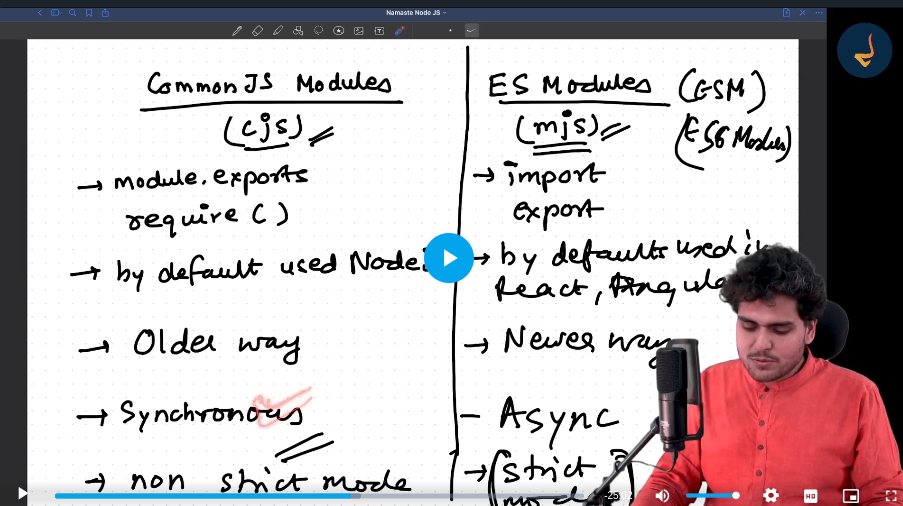 Namaste Node JS
CommonJS Modules
(cjs)
→ module.exports
require ( )
→ by default used
→ Older way
→ Synchronous
→ non strict mode
ES Modules (ESM)
(mjs)
(ES6 Modules)
→ import
export
→ by defaults used
React,
→ Newer way
- Async
→ (strict
mode
HD